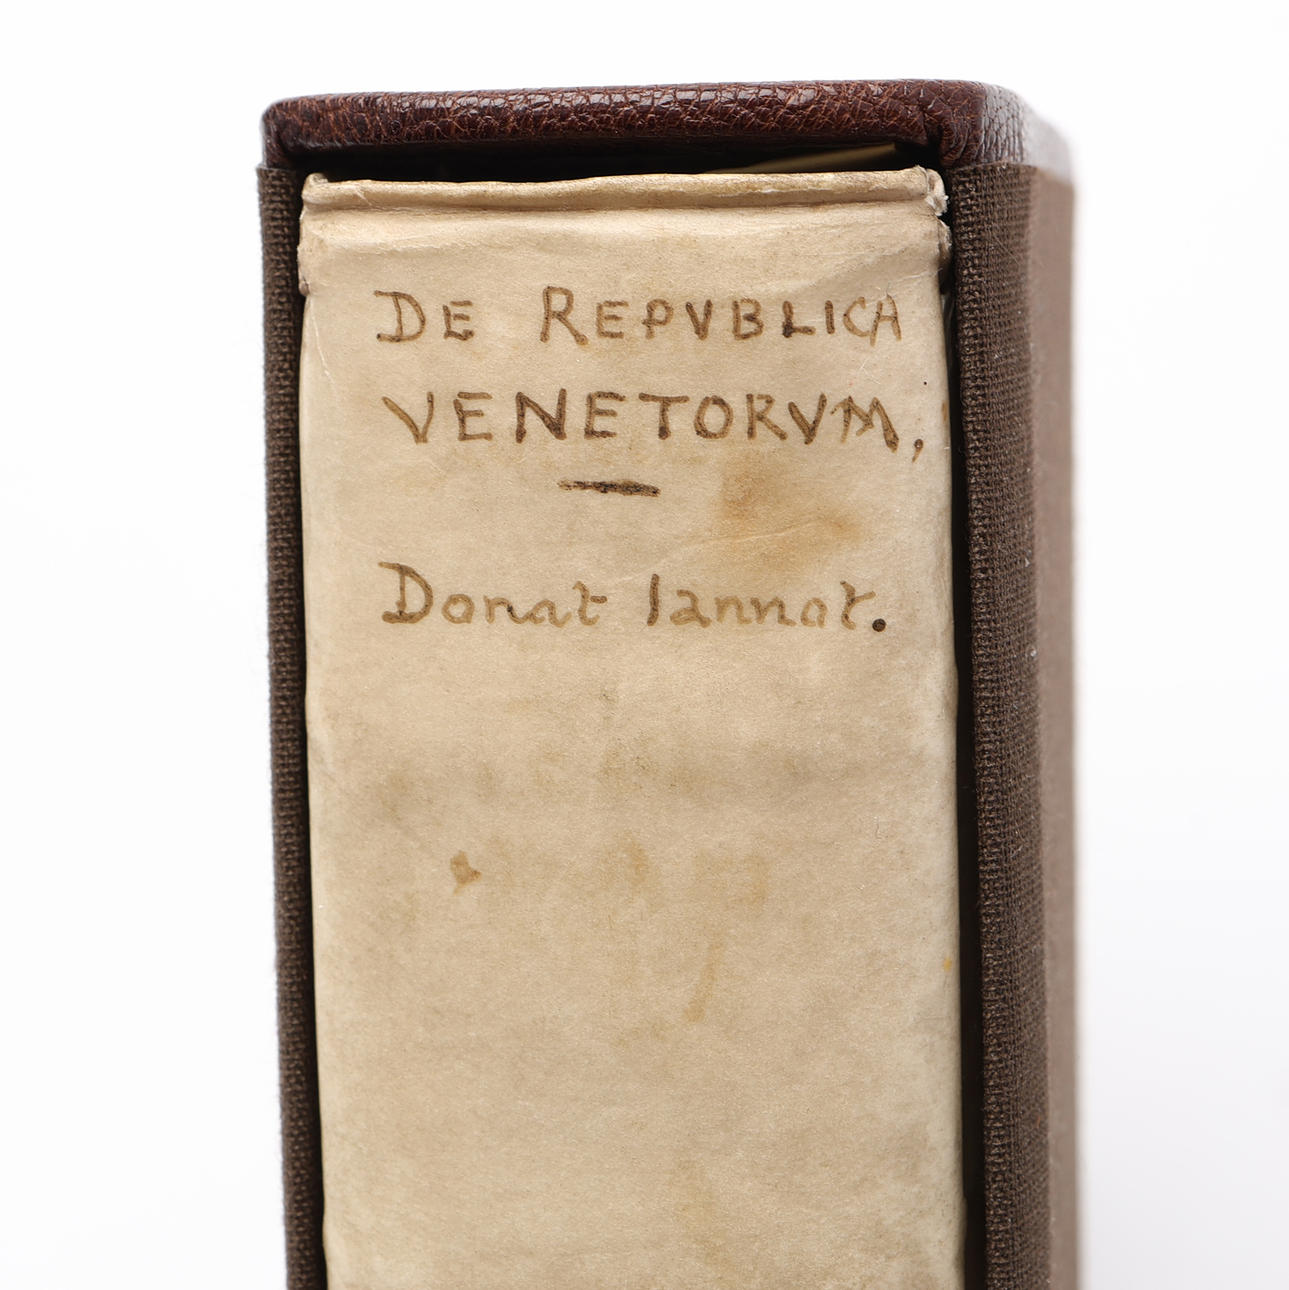 DE REPVBLICA
VENETORVM,
Donat Iannot.